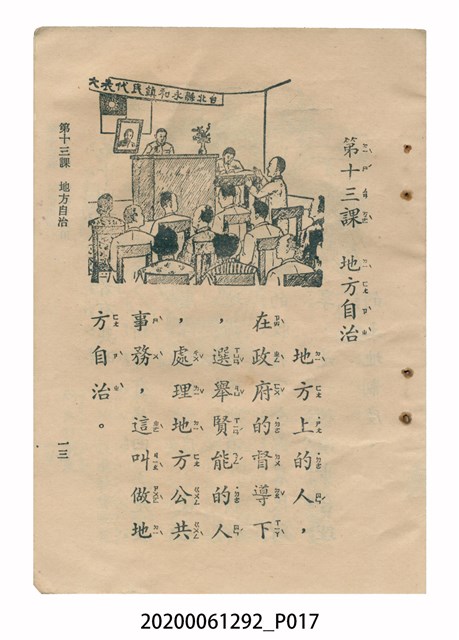 台北縣永和鎮民代表大
第十三課 地方自治
地方上的人，
在政府的督導下
，選舉賢能的人
，處理地方公共
事務，這叫做地
方自治。
第十三課 地方自治
一三
20200061292_P017